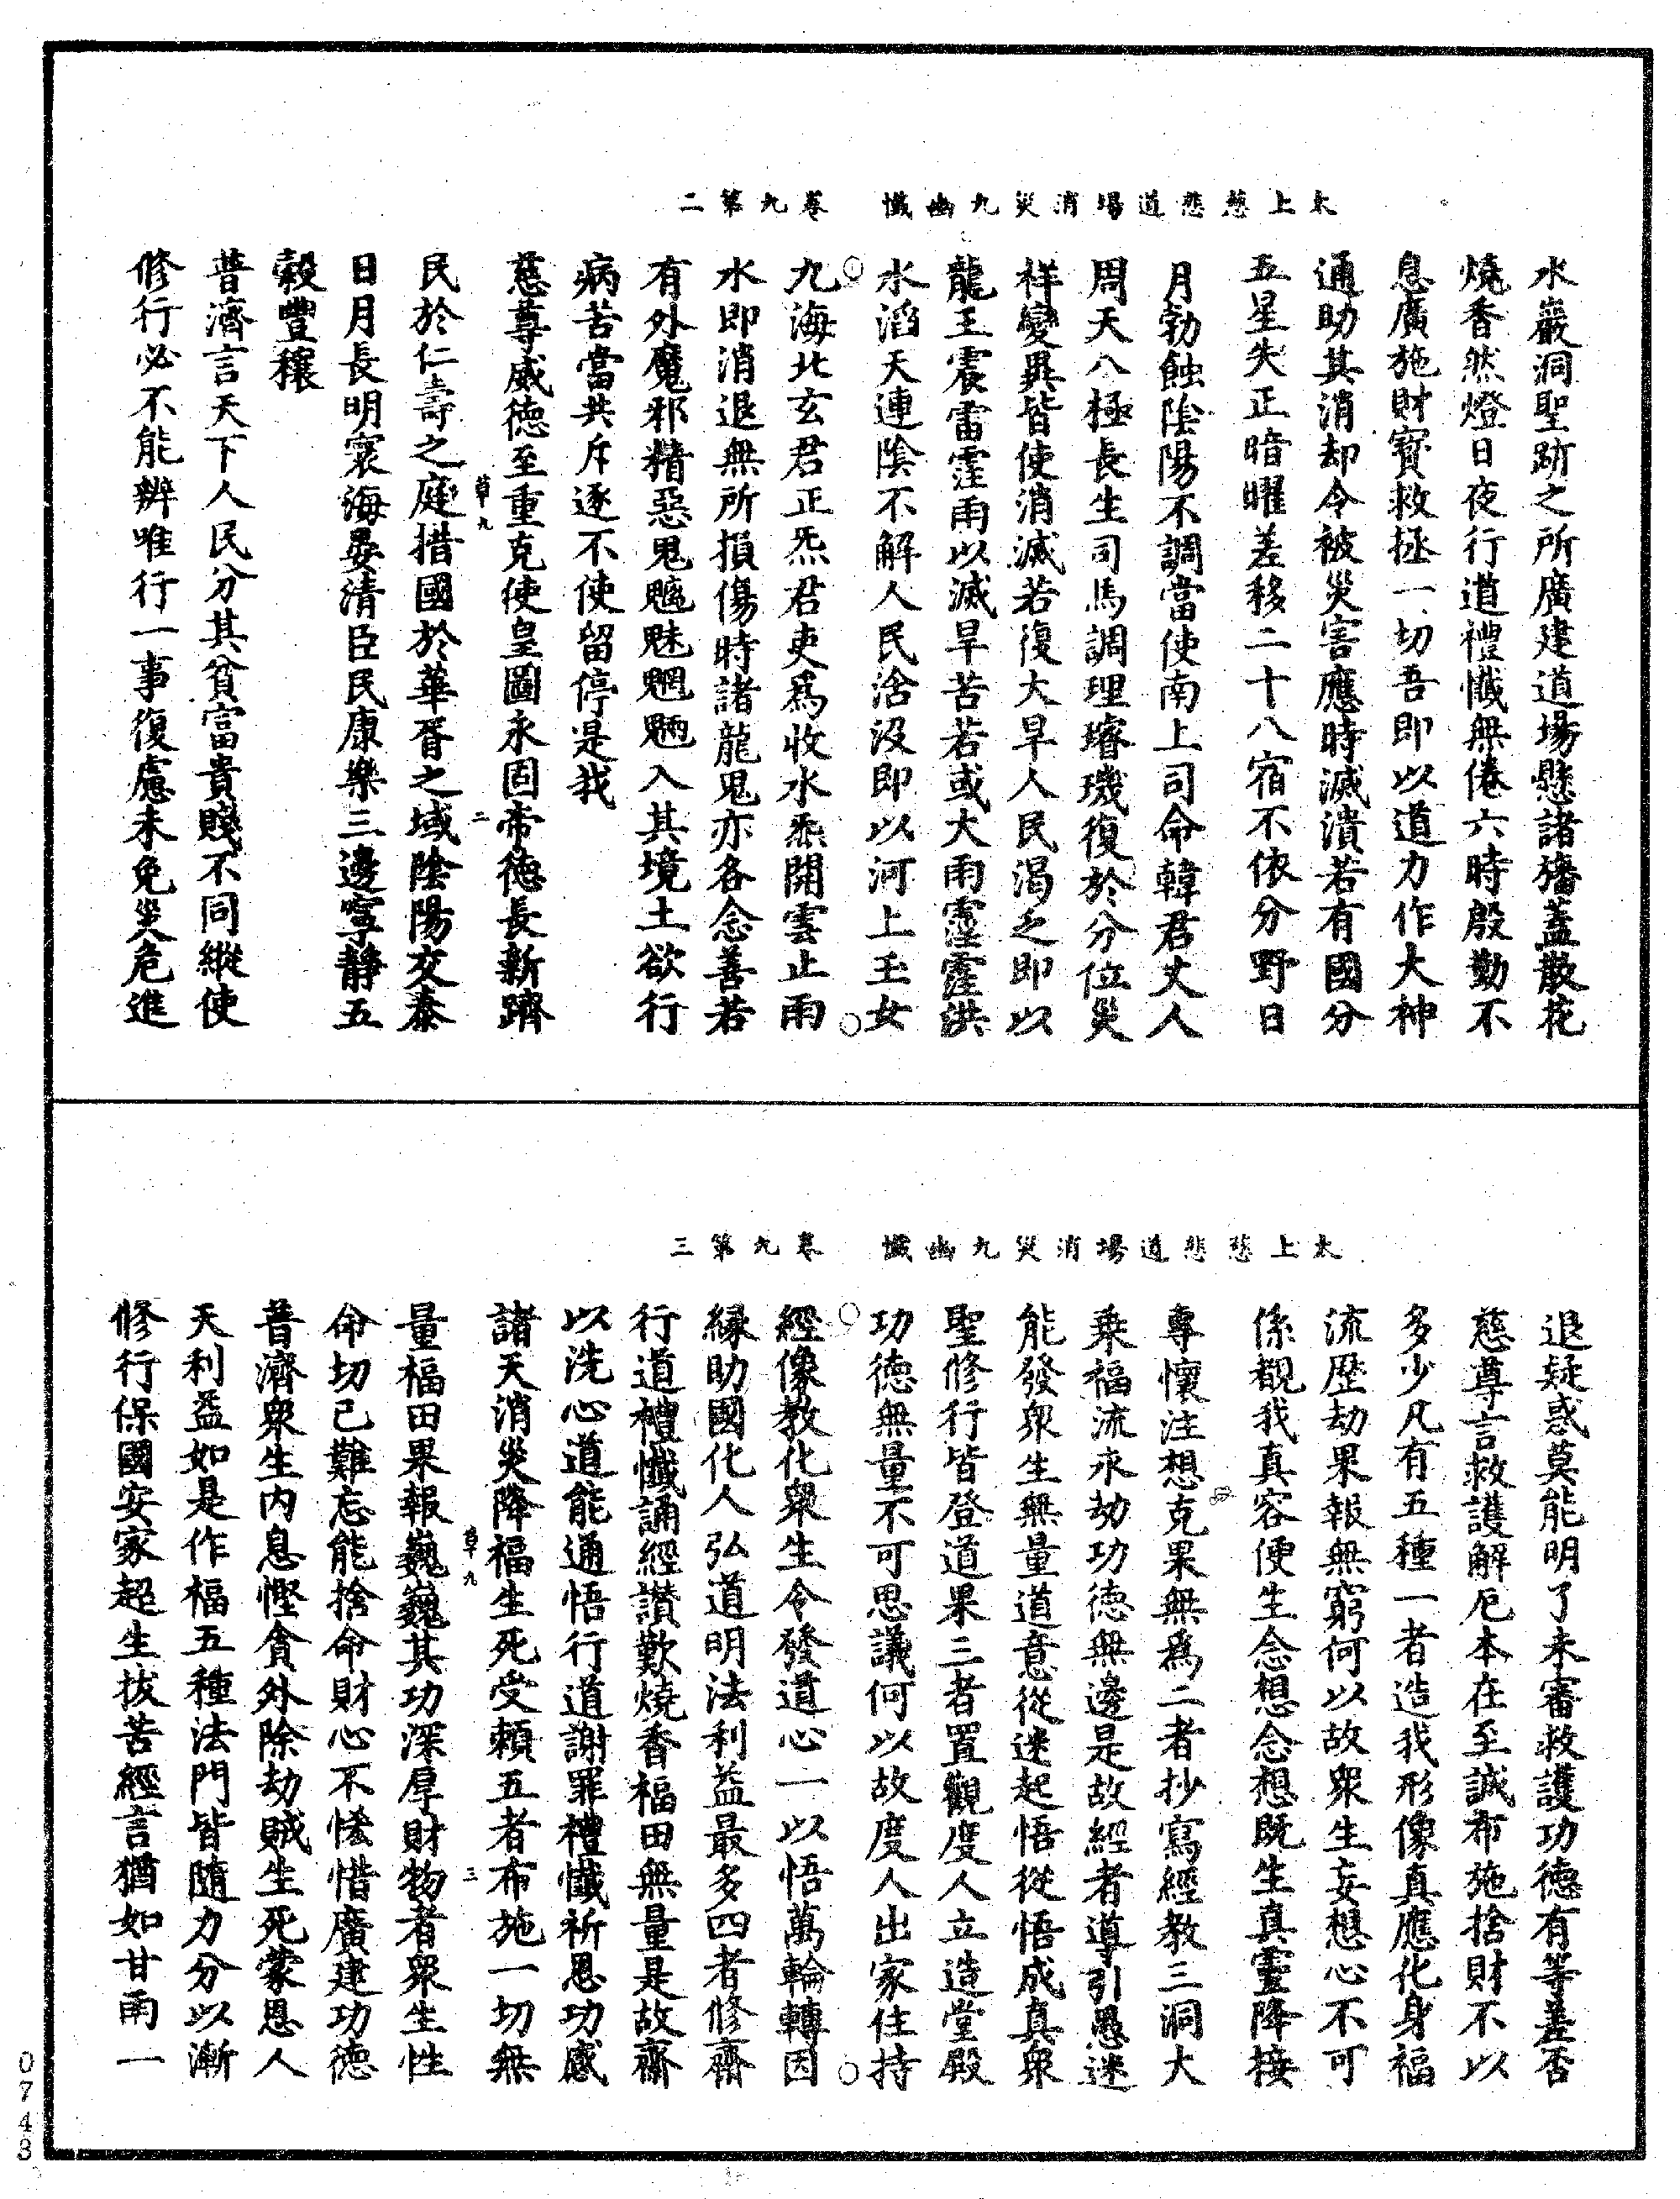 太上慈悲道場消災九幽懺　卷九第二
水巖洞聖跡之所廣建道場懸諸旛蓋散花
燒香然燈日夜行道禮懺無倦六時殷勤不
息廣施財寶救拯一切吾即以道力作大神
通助其消却令被災害應時滅潰若有國分
五星失正暗曜差移二十八宿不依分野日
月勃蝕陰陽不調當使南上司命韓君丈人
周天八極長生司馬調理璿璣復於分位災
祥變異皆使消滅若復大旱人民渴乏即以
龍王震雷霔雨以滅旱苦若或大雨霪霔洪
水滔天連陰不解人民淪沒即以河上玉女
九海北玄君正炁君吏爲收水炁開雲止雨
水即消退無所損傷時諸龍鬼亦各念善若
有外魔邪精惡鬼魑魅魍魎入其境土欲行
病苦當共斥逐不使留停是我
慈尊威德至重克使皇圖永固帝德長新躋
草九　二
民於仁壽之庭措國於華胥之域陰陽交泰
日月長明寰海晏清臣民康樂三邊寧靜五
穀豐穰
普濟言天下人民分其貧富貴賤不同縱使
修行必不能辨唯行一事復慮未免災危進
太上慈悲道場消災九幽懺　卷九第三
退疑惑莫能明了未審救護功德有等差否
慈尊言救護解厄本在至誠布施捨財不以
多少凡有五種一者造我形像真應化身福
流歷劫果報無窮何以故眾生妄想心不可
係覩我真容便生念想念想既生真靈降接
專懷注想克果無爲二者抄寫經教三洞大
乘福流永劫功德無邊是故經者導引愚迷
能發衆生無量道意從迷起悟從悟成真衆
聖修行皆登道果三者置觀度人立造堂殿
功德無量不可思議何以故度人出家住持
經像教化衆生令發道心一以悟萬輪轉因
緣助國化人弘道明法利益最多四者修齋
行道禮懺誦經讚歎燒香福田無量是故齋
以洗心道能通悟行道謝罪禮懺祈恩功感
諸天消災降福生死受賴五者布施一切無
草九　三
量福田果報巍巍其功深厚財物者衆生性
命切己難忘能捨命財心不悋惜廣建功德
普濟衆生內息慳貪外除劫賊生死蒙恩人
天利益如是作福五種法門皆隨力分以漸
修行保國安家超生拔苦經言猶如甘雨一
0743